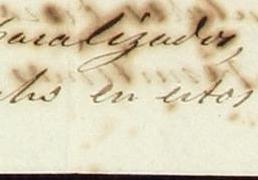 paralizados,
en estos